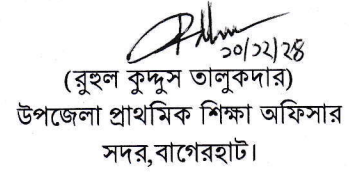 ২০/১২/২৪
(রুহুল কুদ্দুস তালুকদার)
উপজেলা প্রাথমিক শিক্ষা অফিসার
সদর, বাগেরহাট।